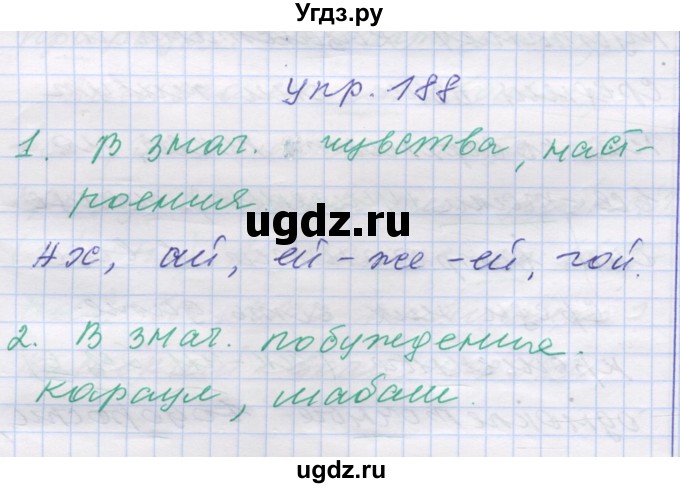 Угдз.ру
упр. 188
1. В знач. чувства, наст-
роения
ugdz.ru
Ах, ай, ей-же-ей, гой.
2. В знач. побуждение.
караул, шабаш.
ugdz.ru